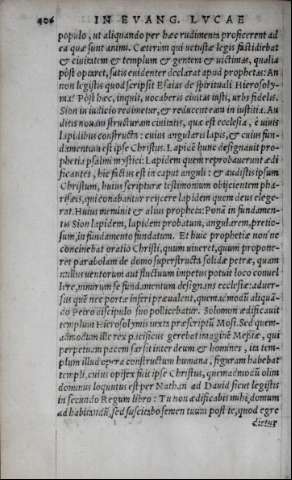 406 IN EVANG. LVCAE
populo, ut aliquando per hæc rudimenta proficerent ad
ea quæ sunt animi. Cæterùm qui uetustæ legis fastidiebat
& ciuitatem & templum & gentem & uictimas, qualia
pòst oporteret, satis euidenter declarat apud prophetas: An
non legistis quod scripsit Esaias de spirituali Hierosolyma?
Pòst hæc, inquit, uocaberis ciuitas iusti, urbs fidelis.
Sion in iudicio redimetur, & reducent eam in iustitia. Auditis
nouam structuram ciuitatis, quæ est ecclesia, è uiuis
lapidibus constructa: cuius angularis lapis, & cuius fundamentum
est ipse Christus. Lapidē hunc designauit prophetia
psalmi mystici: Lapidem quem reprobauerunt ædificantes,
hic factus est in caput anguli: & audistis ipsum
Christum, huius scripturæ testimonium obijcientem pharisæis,
qui conabantur reijcere lapidem quem deus elegerat.
Huius meminit & alius propheta: Ponā in fundamentis
Sion lapidem, lapidem probatum, angularem, pretiosum,
in fundamento fundatum. Et huic prophetiæ non nō
concinebat oratio Christi, quum uiueret, quum proponeret
parabolam de domo superstructa solidæ petræ, quam
nullus uentorum aut fluctuum impetus potuit loco conuellere,
nimirum se fundamentum designans ecclesiæ: aduersus
quē nec portæ inferi præualent, quemadmodū aliquādo
Petro discipulo suo pollicebatur. Solomon ædificauit
templum Hierosolymis iuxta præscriptū Mosi. Sed quemadmodum
ille rex pacificus gerebat imaginē Messiæ, qui
perpetuam pacem sarsit inter deum & homines, ita templum
illud opera constructum humana, figuram habebat
templi, cuius opifex fuit ipse Christus, quemadmodū olim
dominus loquutus est per Nathan ad Dauid sicut legistis
in secundo Regum libro: Tu non ædificabis mihi domum
ad habitandū, sed suscitabo semen tuum post te, quod egredietur